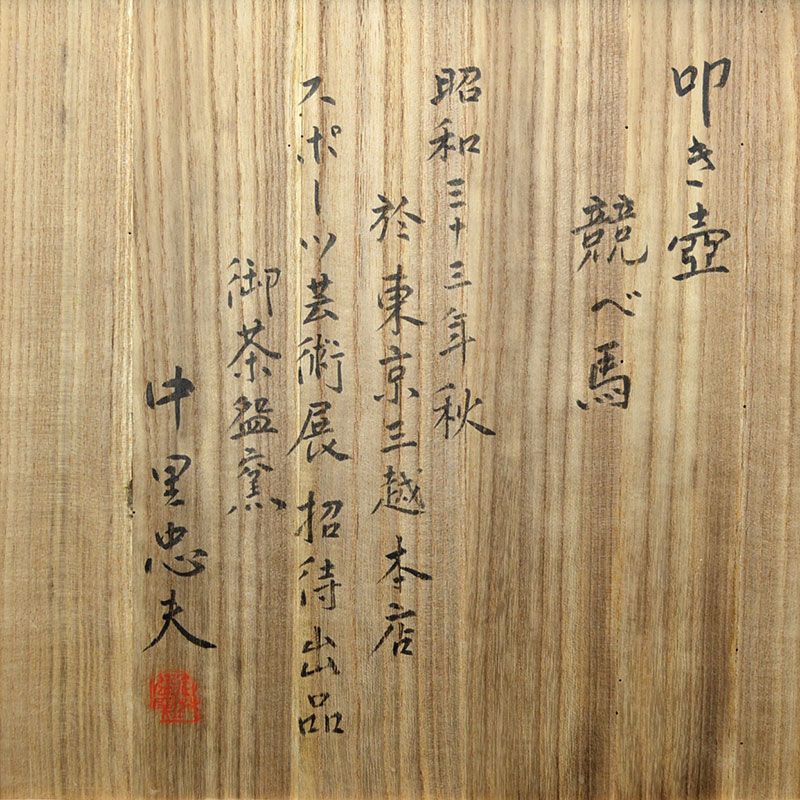 叩き壺
競べ馬
昭和三十三年秋
於東京三越本店
スポーツ芸術展招待出品
御茶盌窯
中里忠夫